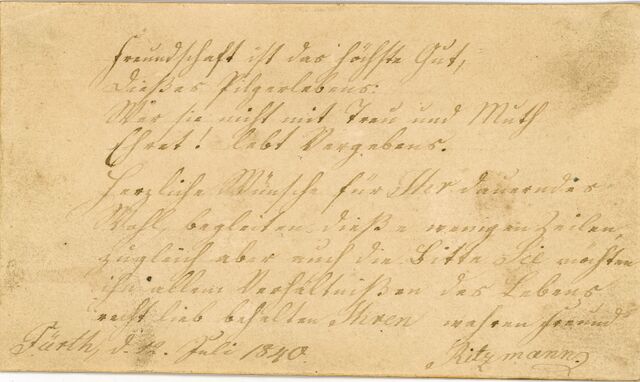 Freundschaft ist das höchste Gut,
Dießes Pilgerlebens:
Wer sie nicht mit Treu und Muth
Ehret! lebt Vergebens.
Herzliche Wünsche für Ihr dauerndes
Wohl, begleiten dieße wenigen Zeilen,
zugleich aber auch die Bitte Sie möchten
in allen Verhältnißen des Lebens
recht lieb behalten Ihren wahren Freund
Fürth, d. Juli 1840. Ritzmann.